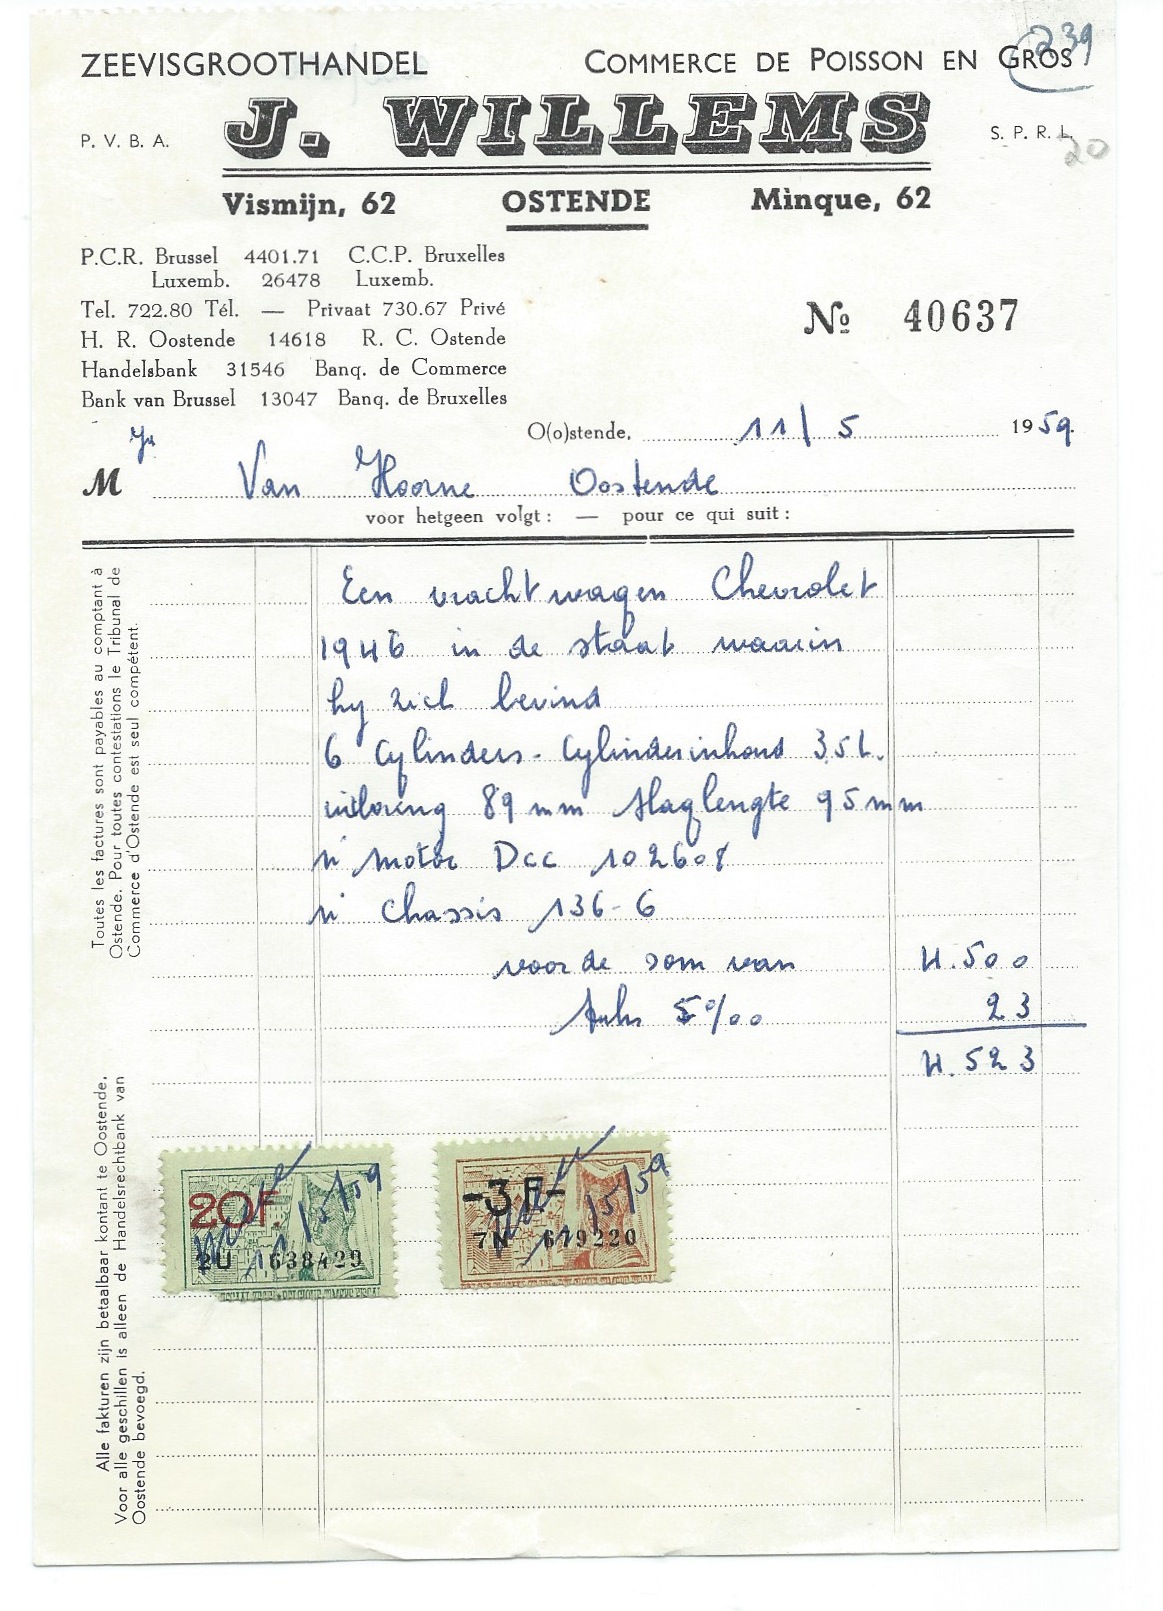 239
ZEEVISGROOTHANDEL COMMERCE DE POISSON EN GROS
P. V. B. A. J. WILLEMS S. P. R. L.
20
Vismijn, 62 OSTENDE Minque, 62
P.C.R. Brussel 4401.71 C.C.P. Bruxelles
Luxemb. 26478 Luxemb.
Tel. 722.80 Tél. — Privaat 730.67 Privé
H. R. Oostende 14618 R. C. Ostende
Handelsbank 31546 Banq. de Commerce
Bank van Brussel 13047 Banq. de Bruxelles
Nº 40637
O(o)stende, 11/5 1959
M Van Hoorne Oostende
voor hetgeen volgt : — pour ce qui suit :
Een vrachtwagen Chevrolet
1946 in de staat waarin
hy zich bevind
6 Cylinders - Cylinderinhoud 3,5 L.
uitboring 89 mm slaglengte 95 mm
n° motor Dcc 102608
n° chassis 136-6
voor de som van 4.500
5%00 23
4.523
20F.
2U 638429
11/5/59
-3F-
7N 679220
11/5/59
Toutes les factures sont payables au comptant à
Ostende. Pour toutes contestations le Tribunal de
Commerce d'Ostende est seul compétent.
Alle fakturen zijn betaalbaar kontant te Oostende.
Voor alle geschillen is alleen de Handelsrechtbank van
Oostende bevoegd.